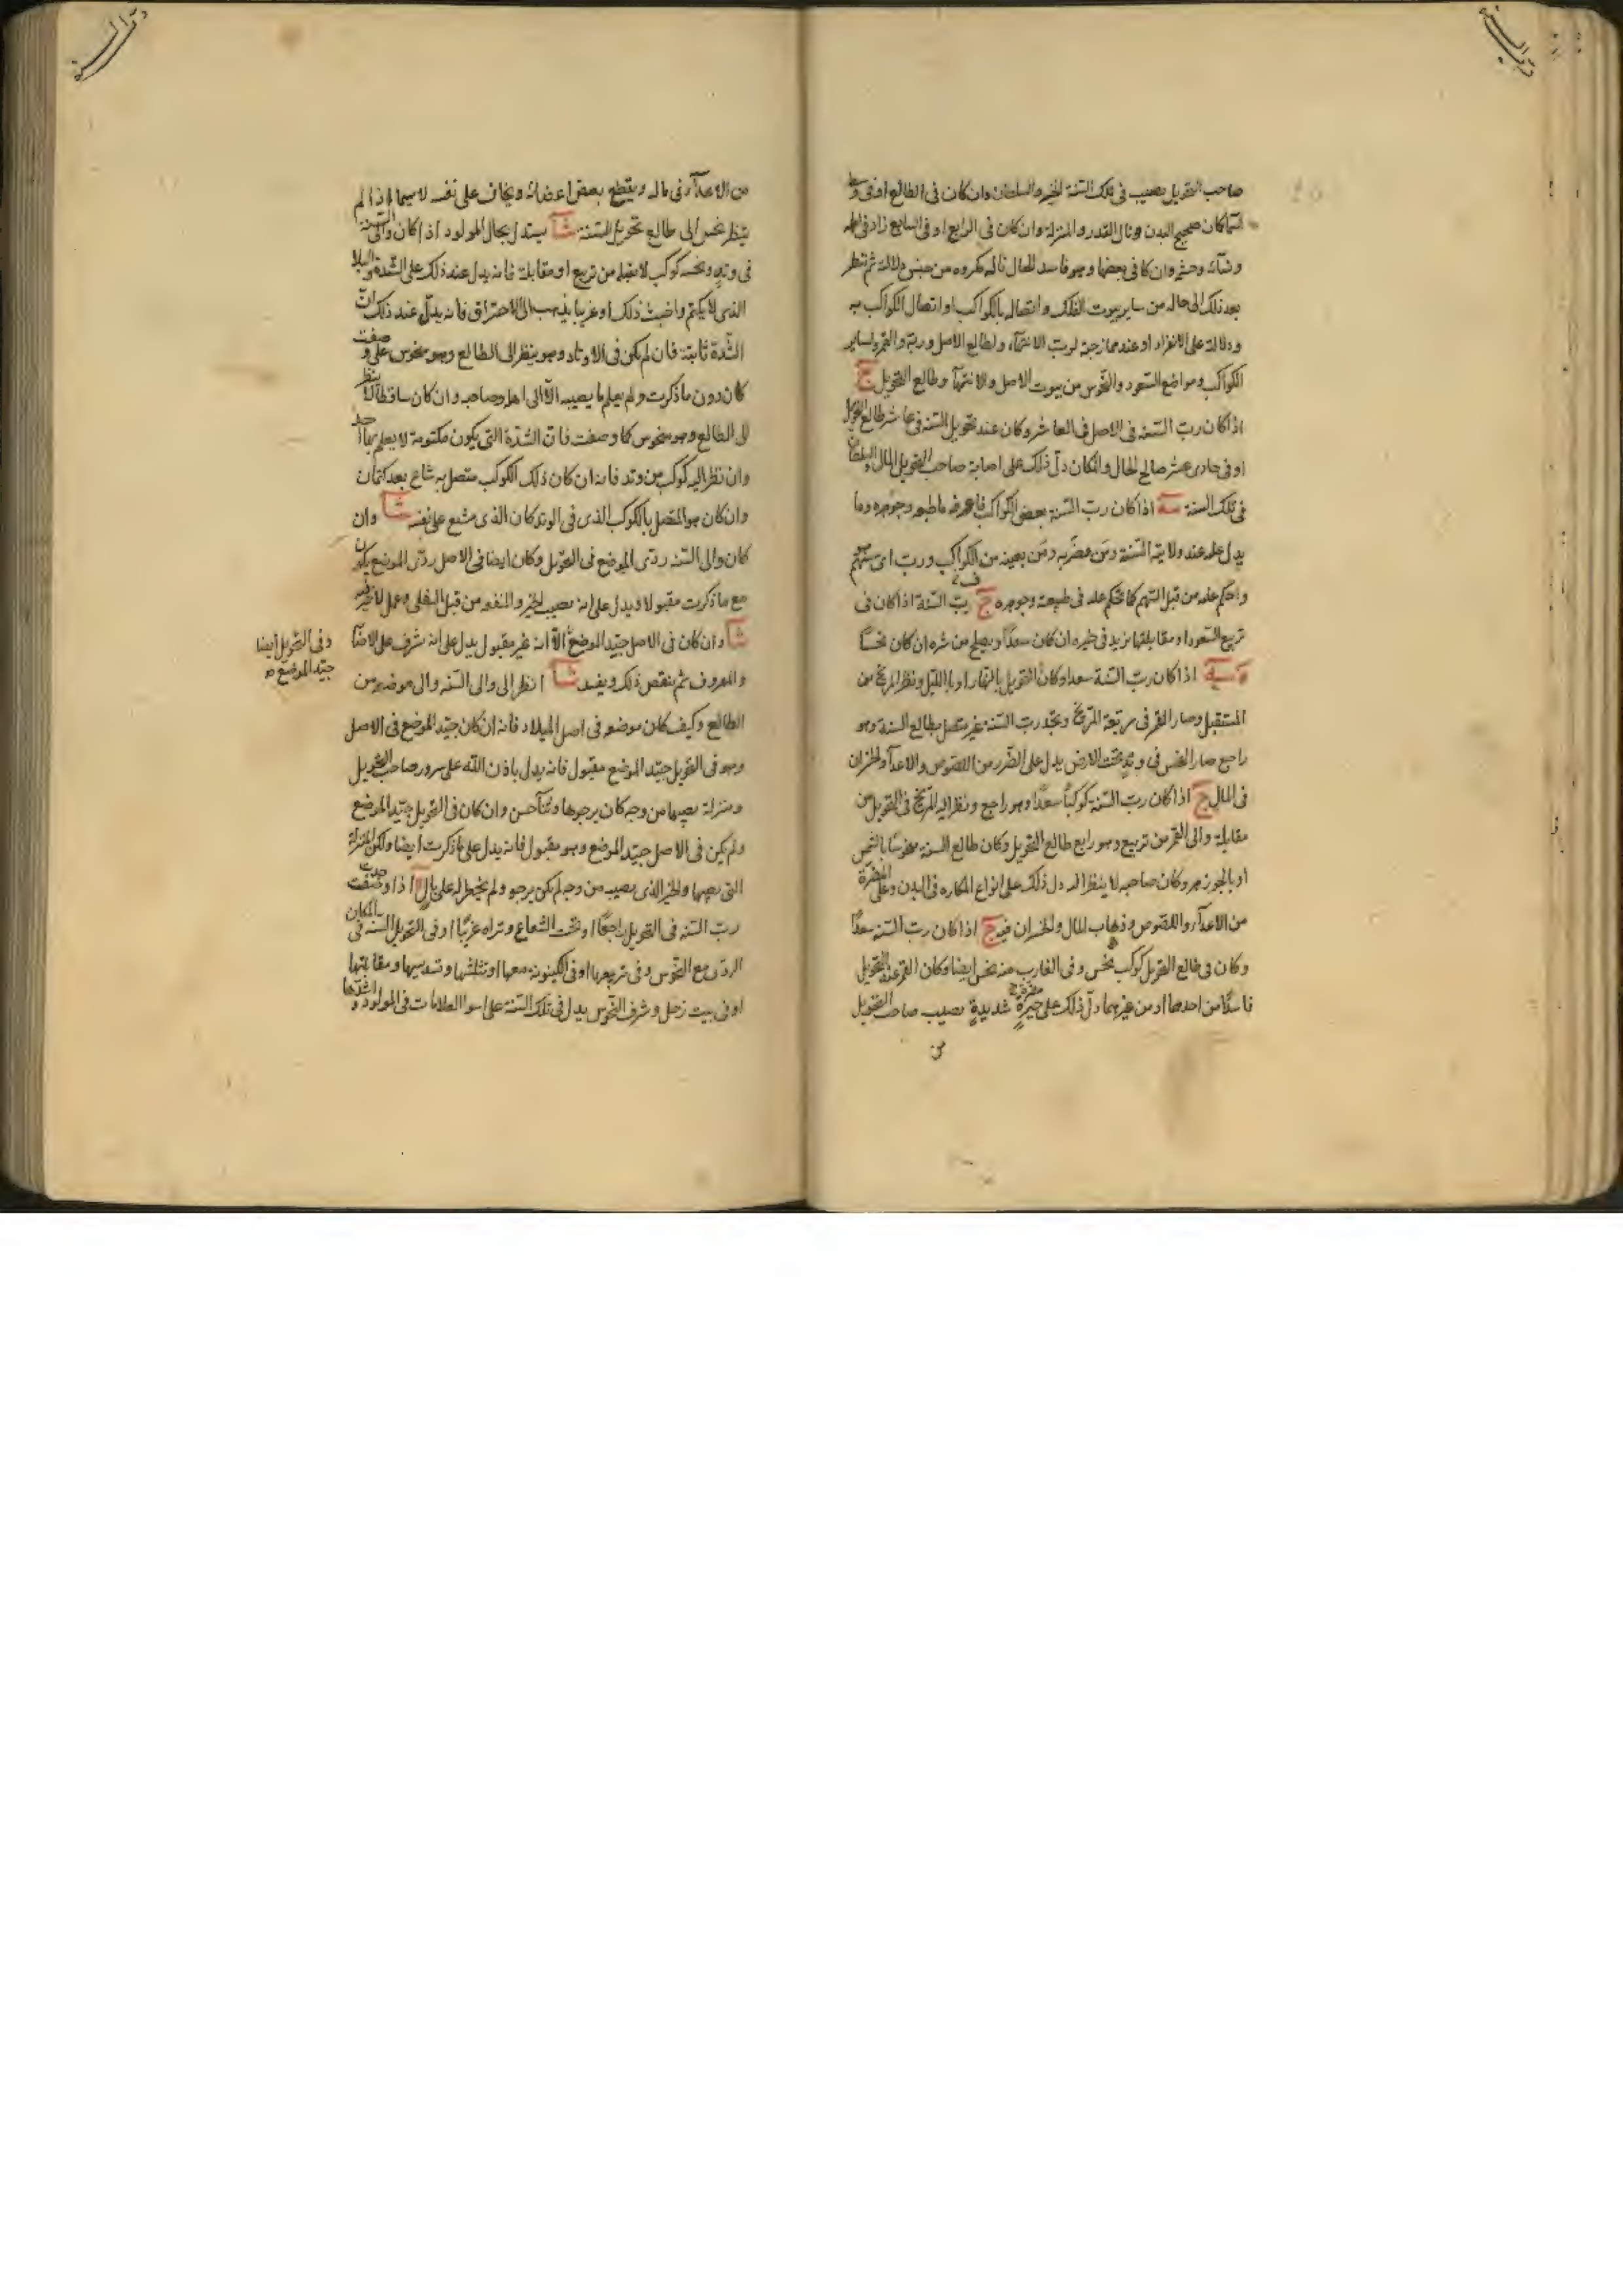 رب السنة
صاحب التحويل يصيب في تلك السنة الخير والسلطان وان كان في الطالع او في وسط
السما كان صحيح البدن ونال القدر والمنزلة وان كان في الرابع او في السابع زاد في اهله
ونسائه وحشمه وان كا في بعضها وهو فاسد الحال ناله مكروه من جنس دلالته ثم تنظر
بعد ذلك الى حاله من ساير بيوت الفلك واتصاله بالكواكب او اتصال الكواكب به
ودلالته على الانفراد او عند ممازجته لرب الانتهآء ولطالع الاصل وربه والقمر ولساير
الكواكب ومواضع السعود والنحوس من بيوت الاصل والانتهآ وطالع التحويل ج
اذا كان رب السنه في الاصل في العاشر وكان عند تحويل السنه في عاشر طالع التحويل
او في حادى عشر صالح الحال والمكان دل ذلك على اصابة صاحب التحويل المال والسلطان
في تلك السنة سه اذا كان رب السنة بعض الكواكب فاعرف ما طبعه وجوهره وما
يدل عليه عند ولايته السنة ومن مضر به ومن يعينه من الكواكب ورب اى سهم هو
واحكم عليه من قبل السهم كما تحكم عليه في طبيعته وجوهره ج رب السنة اذا كان في
تربيع السعود او مقابلتها يزيد في خيره ان كان سعدًا ويصلح من شره ان كان نحسًا
اذا كان رب السنة سعدا وكان التحويل بالنهار او بالليل ونظر المريخ من
المستقبل وصار القمر في مربعة المريخ وتجد رب السنة غير متصل بطالع السنة وهو
راجع صار النحس في وتد تحت الارض يدل على الضرر من اللصوص والاعدآ والخسران
في المال ج اذا كان رب السنة كوكبًا سعدًا وهو راجع ونظر اليه المريخ في التحويل من
مقابلة والى القمر من تربيع وهو رابع طالع التحويل وكان طالع السنة منحوسًا بالشمس
او بالجوزهر وكان صاحبه لا ينظر اليه دل ذلك على انواع المكاره في البدن وعلى المضرة
من الاعدآء واللصوص وذهاب المال والخسران فيه ج اذا كان رب السنه سعدًا
وكان في طالع التحويل كوكب نحس وفي الغارب منه نحس ايضا وكان القمر عند التحويل
فاسدًا من احدهما او من غيرهما دل ذلك على حيرةٍ شديدةٍ تصيب صاحب التحويل
من
رب السنة
من الاعدآء وفى ماله ويقطع بعض اعضائه ويخاف على نفسه لا سيما اذا لم
ينظر نحس الى طالع تحويل السنة شا يستدل بحال المولود اذا كان والى السنة
في وتد ونحسه كوكب لا يقبله من تربيع او مقابلة فانه يدل عند ذلك على الشدة والبلا
الذى لا يكتم واخبث ذلك او غريبا يذهب الى الاحتراق فانه يدل عند ذلك ان
الشدة ثابتة فان لم يكن في الاوتاد وهو ينظر الى الطالع وهو منحوس على ما وصفت
كان دون ما ذكرت ولم يعلم ما يصيبه الا الى اهله وصاحبه وان كان ساقطا لا ينظر
الى الطالع وهو منحوس كما وصفت فان الشدة التى يكون مكتومة لا يعلم بها احد
وان نظر اليه كوكب من وتد فانه ان كان ذلك الكوكب متصل به شاع بعد كتمان
وان كان هو المتصل بالكوكب الذى في الوتد كان الذى مشيع على نفسه شا وان
كان والى السنه ردى الموضع في التحويل وكان ايضا في الاصل ردى الموضع يكون
مع ما ذكرت مقبولا ويدل على انه يصيب الخير والمنفعه من قبل السفلى وعمل لا خير فيه
شا وان كان في الاصل جيد الموضع الا انه غير مقبول يدل على انه يشرف على
وفي التحويل ايضا
جيد الموضع صح
والمعروف ثم ينقص ذلك ويفسد شا انظر الى والى السنه والى موضعه من
الطالع وكيف كان موضعه في اصل الميلاد فانه ان كان جيد الموضع في الاصل
وهو في التحويل جيد الموضع مقبول فانه يدل باذن الله على سرور صاحب التحويل
ومنزلة يصيبها من وجه كان يرجوها وثنآ حسن وان كان في التحويل جيد الموضع
ولم يكن في الاصل جيد الموضع وهو مقبول فانه يدل على ما ذكرت ايضا ولكن المنزلة
التى يصيبها والخير الذى يصيب من وجه لم يكن يرجو ولم يخطر له على بال اذا وجدت
رب السنه في التحويل راجعًا او تحت الشعاع وتراه غربيًا او في التحويل السنه في المكان
الردى مع النحوس وفي تربيعها او في الكينونة معها او تثليثها وتسديسها ومقابلتها
او في بيت زحل وشرف النحوس يدل في تلك السنة على اسوا العلامات في المولود و اشدها